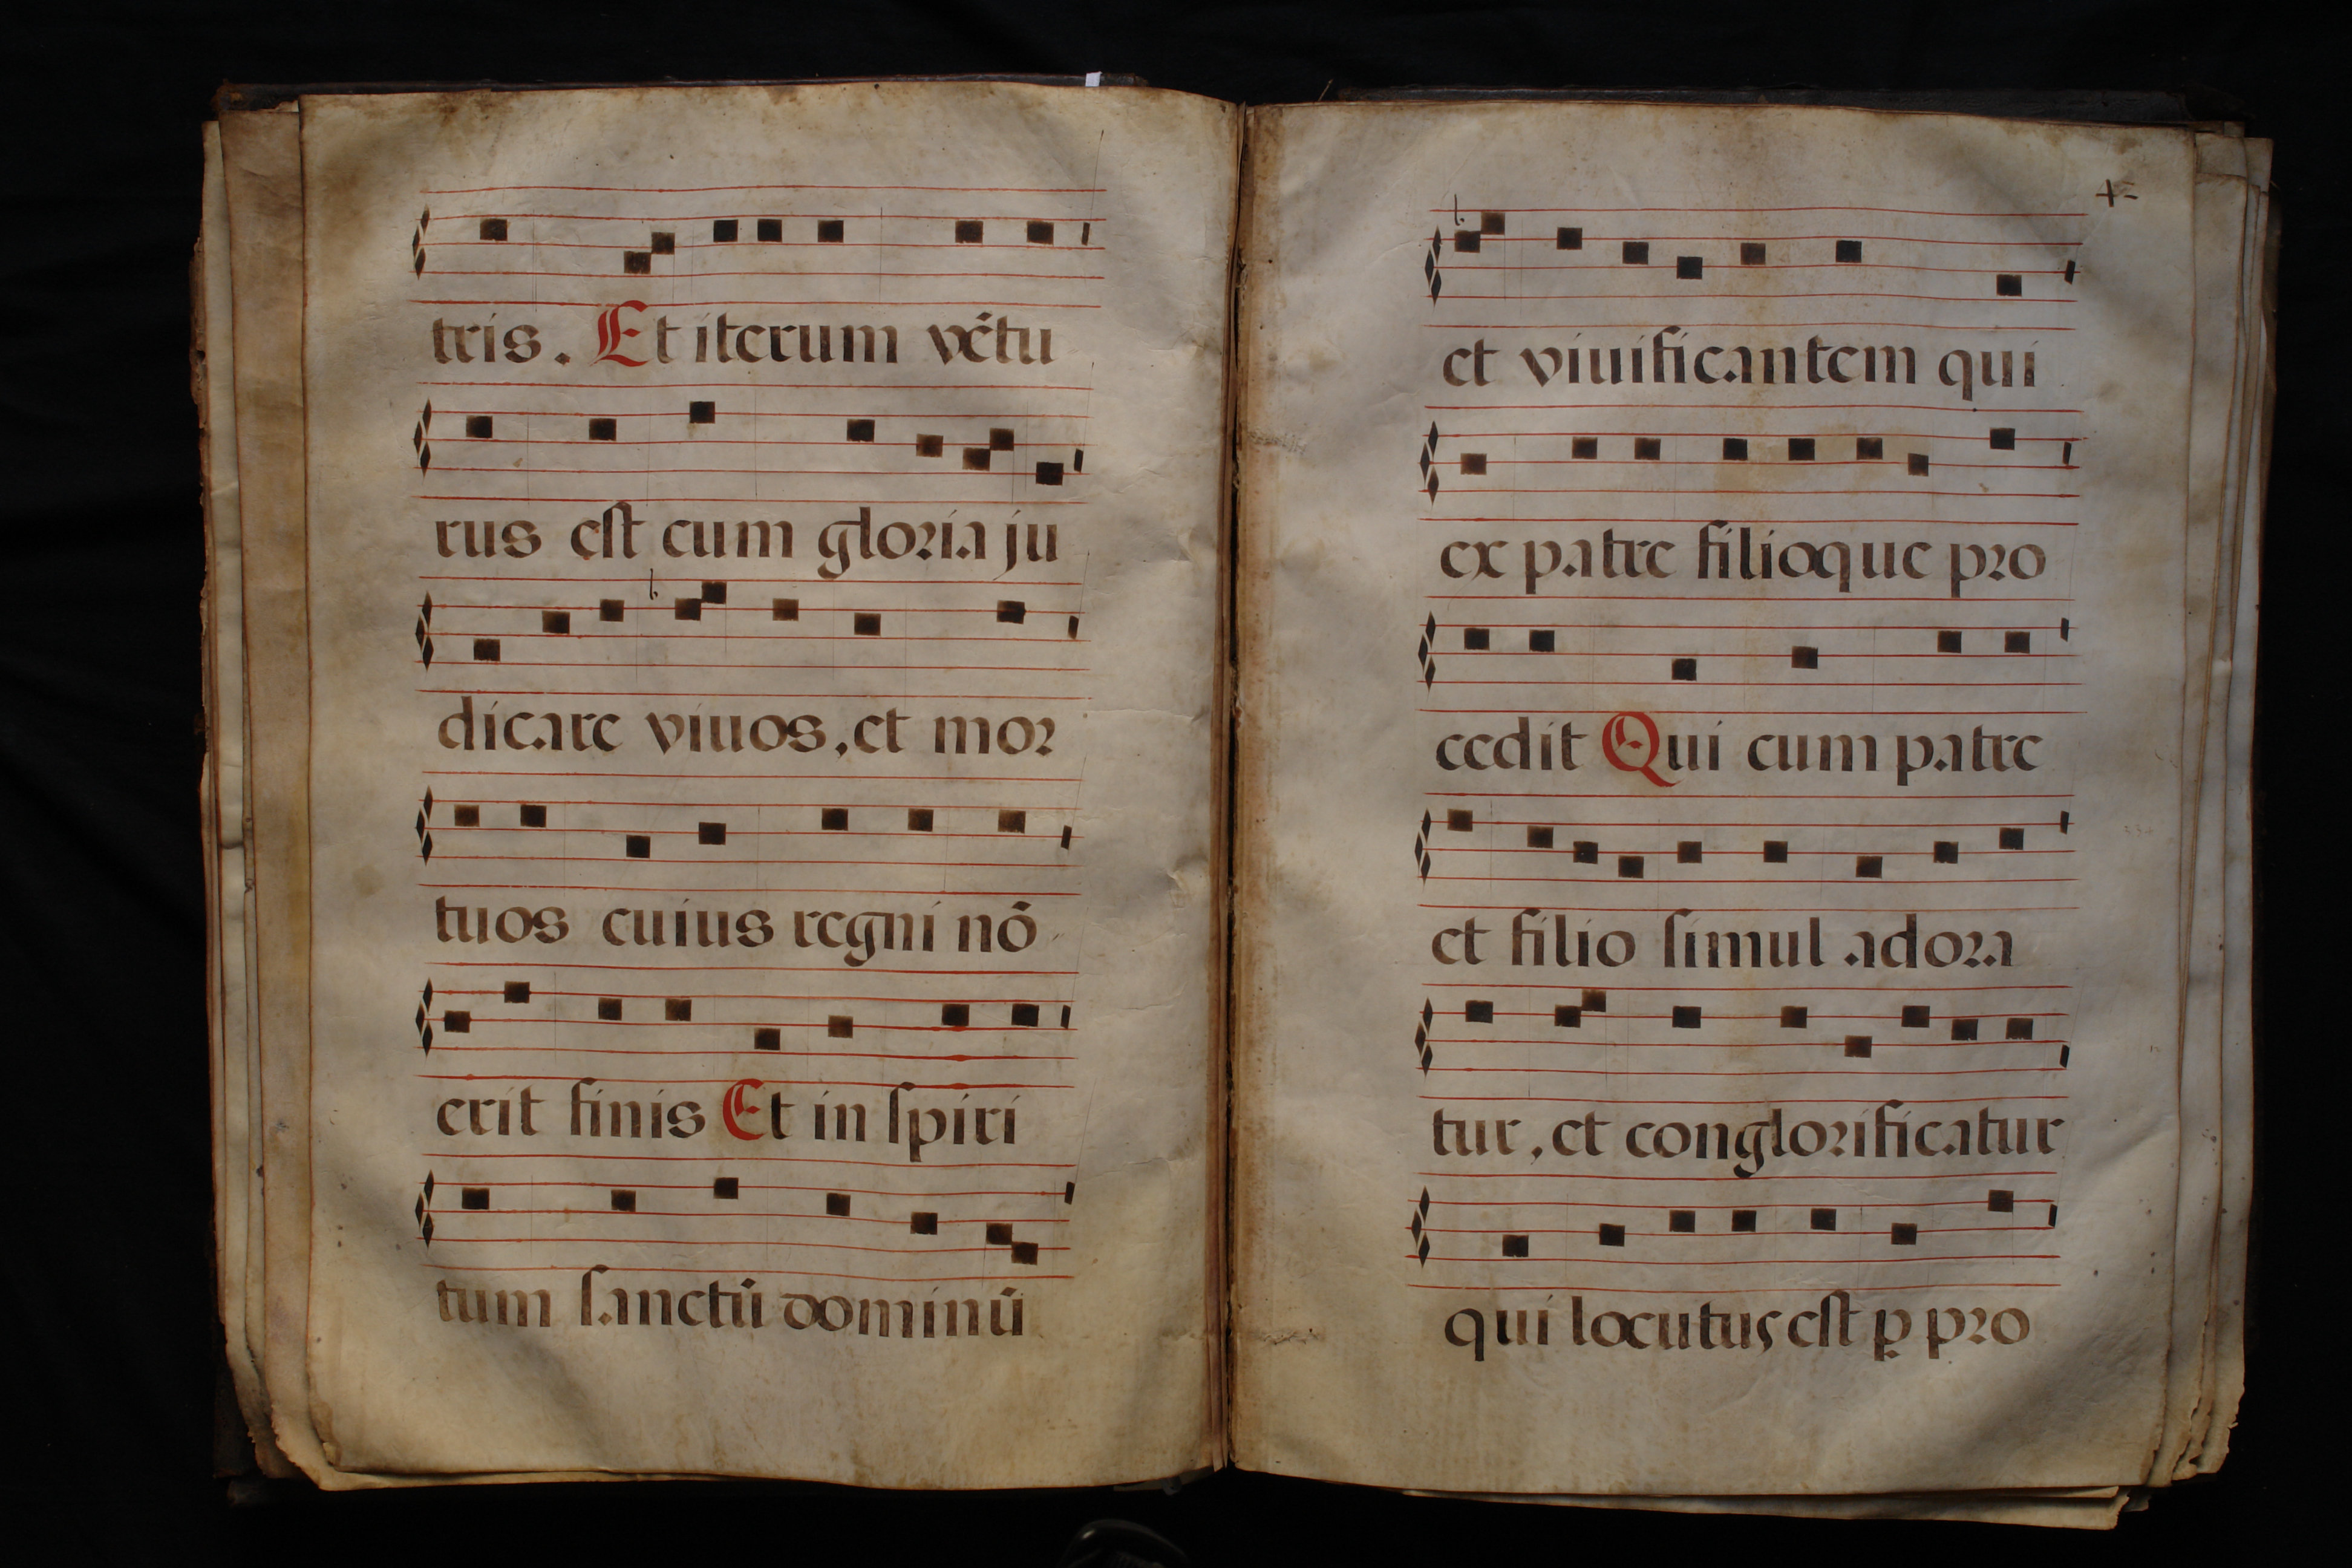 tris. Et iterum vẽtu
rus est cum gloria ju
dicare viuos, et mor
tuos cuius regni nõ
erit finis Et in spiri
tum sanctũ dominũ
et viuificantem qui
ex patre filioque pro
cedit Qui cum patre
et filio simul adora
tur, et conglorificatur
qui locutus est ꝑ pro